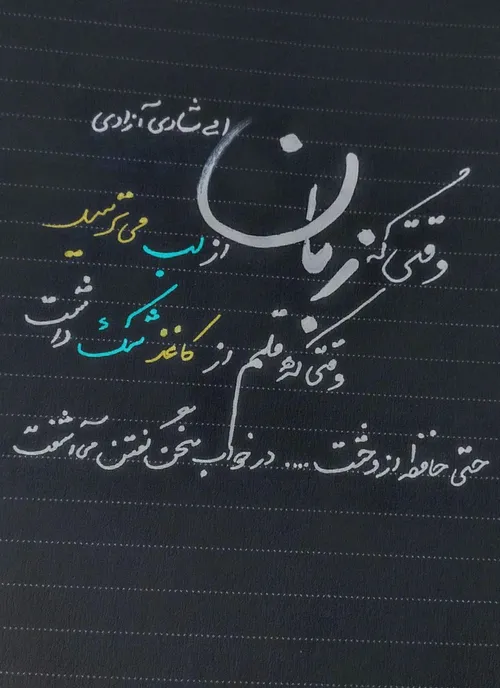 ای شادی آزادی
وقتی که زبان از لب می ترسید
وقتی که قلم از کاغذ شک داشت
حتی حافظه از وحشت .... در خواب سخن گفتن می آشفت